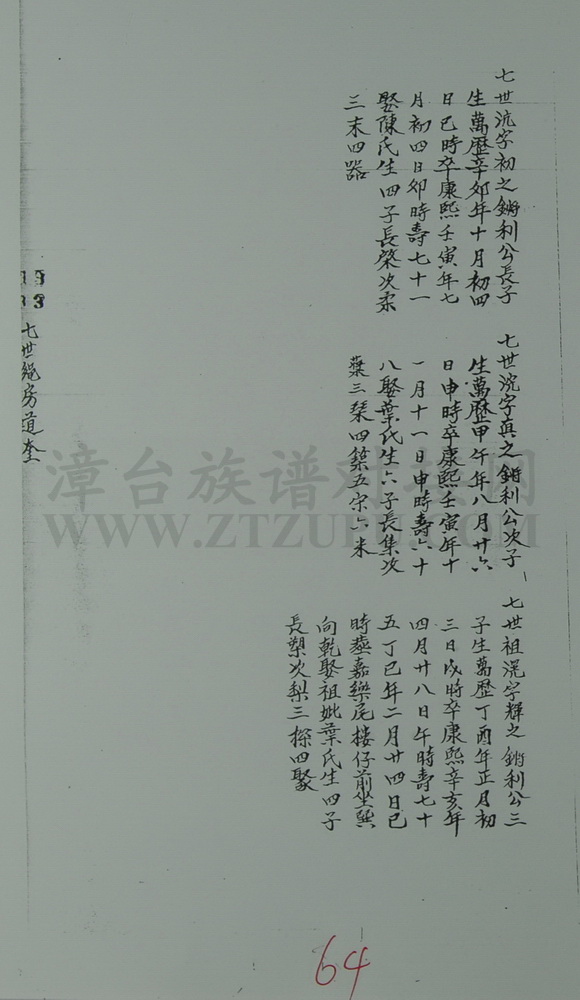 七世沆字初之鏘利公長子
生萬歷辛卯年十月初四
日巳時卒康熙壬寅年七
月初四日卯時壽七十一
娶陳氏生四子長榮次寀
三末四器
七世浣字真之鏘利公次子
生萬歷甲午年八月廿六
日申時卒康熙壬寅年十
一月十一日申時壽六十
八娶葉氏生六子長集次
葉三琹四築五宋六米
七世祖滉字輝之鏘利公三
子生萬歷丁酉年正月初
三日戌時卒康熙辛亥年
四月廿八日午時壽七十
五丁巳年二月廿四日巳
時塟嘉樂尾楼仔前坐巽
向乾娶祖妣葉氏生四子
長槊次梨三探四聚
七世繩房道奎
漳台族谱对接网
WWW.ZTZUPU.COM
64